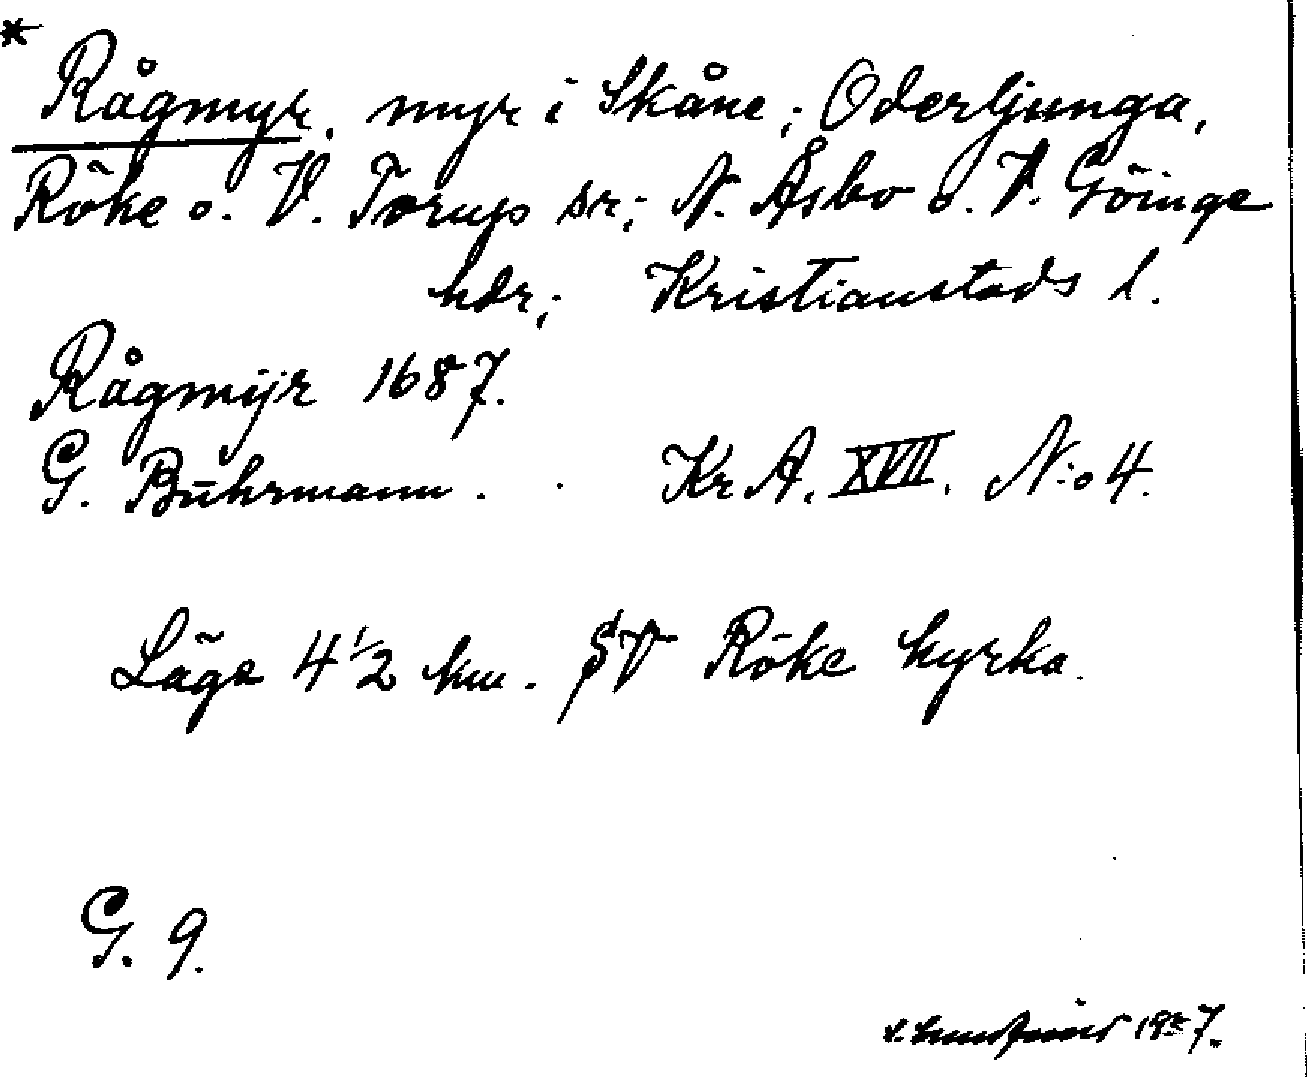 * Rågmyr, myr i Skåne; Oderljunga,
Röke o. V. Torups sr; N. Åsbo o. V. Göinge
hdr; Kristianstads l.
Rågmÿr 1687.
G. Buhrmann. Kr A. XVII. N:o 4.
Läge 4 1/2 km. SV Röke kyrka.
G. 9.